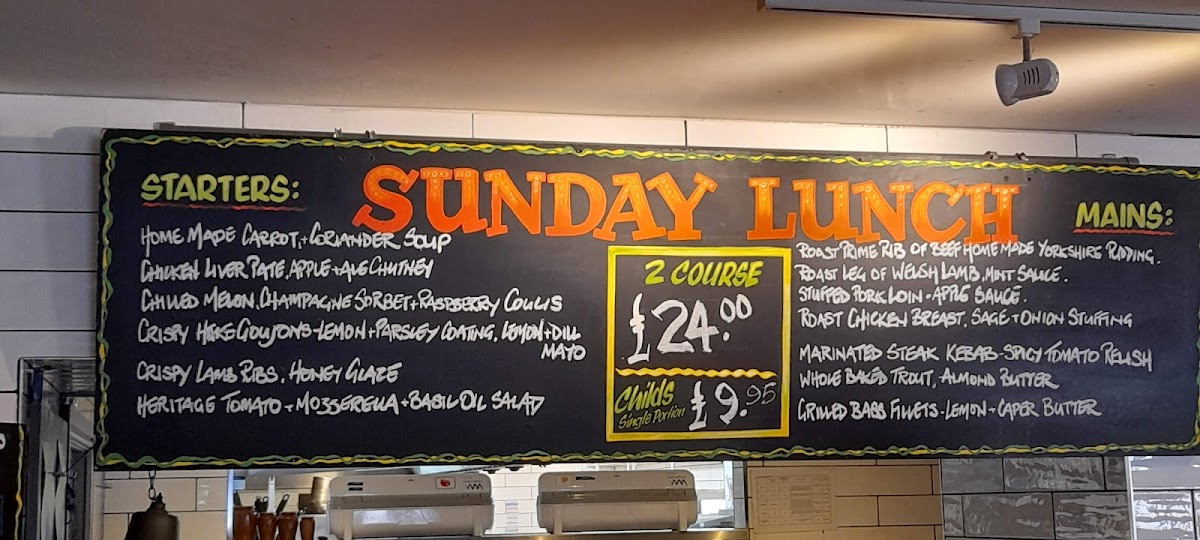 SUNDAY LUNCH
STARTERS:
HOME MADE CARROT + CORIANDER SOUP
CHICKEN LIVER PATE, APPLE + ALE CHUTNEY
CHILLED MELON, CHAMPAGNE SORBET + RASPBERRY COULIS
CRISPY HAKE GOUJONS - LEMON + PARSLEY COATING, LEMON + DILL
MAYO
CRISPY LAMB RIBS, HONEY GLAZE
HERITAGE TOMATO + MOZZERELLA + BASIL OIL SALAD
2 COURSE
£24.00
Childs
Single Portion
£9.95
MAINS:
ROAST PRIME RIB OF BEEF HOME MADE YORKSHIRE PUDDING.
ROAST LEG OF WELSH LAMB, MINT SAUCE.
STUFFED PORK LOIN - APPLE SAUCE.
ROAST CHICKEN BREAST, SAGE + ONION STUFFING
MARINATED STEAK KEBAB - SPICY TOMATO RELISH
WHOLE BAKED TROUT, ALMOND BUTTER
GRILLED BASS FILLETS - LEMON + CAPER BUTTER